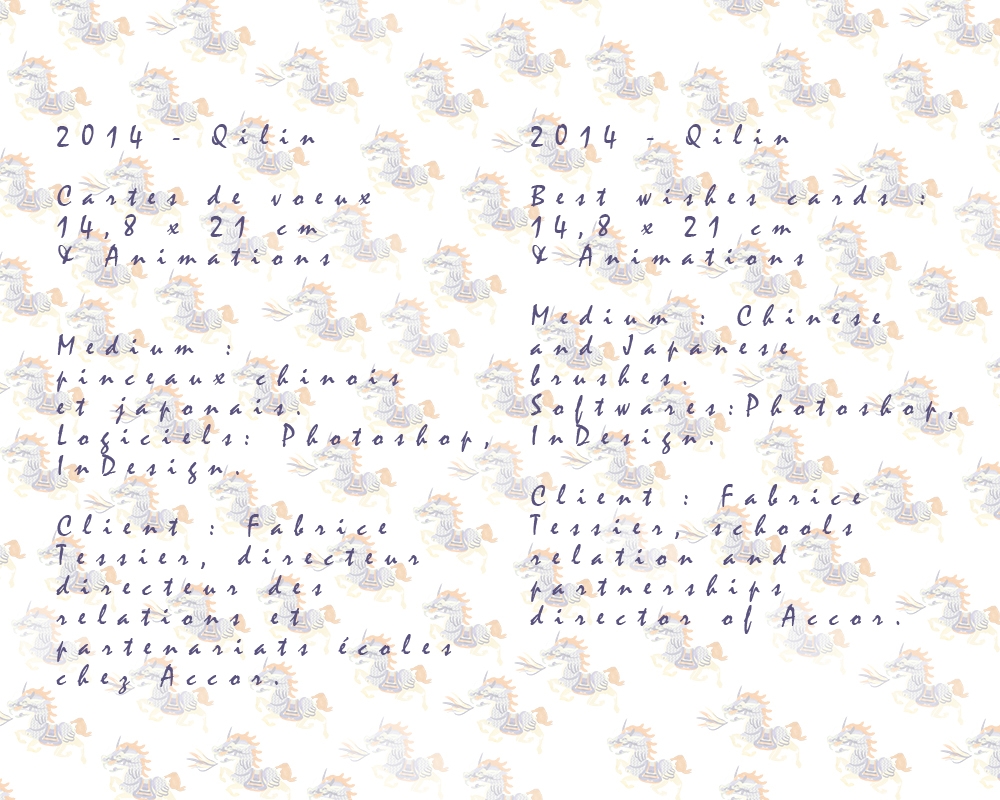 2014 - Qilin
Cartes de voeux
14,8 x 21 cm
& Animations
Medium :
pinceaux chinois
et japonais.
Logiciels: Photoshop,
InDesign.
Client : Fabrice
Tessier, directeur
directeur des
relations et
partenariats écoles
chez Accor.
2014 - Qilin
Best wishes cards :
14,8 x 21 cm
& Animations
Medium : Chinese
and Japanese
brushes.
Softwares:Photoshop,
InDesign.
Client : Fabrice
Tessier, schools
relation and
partnerships
director of Accor.